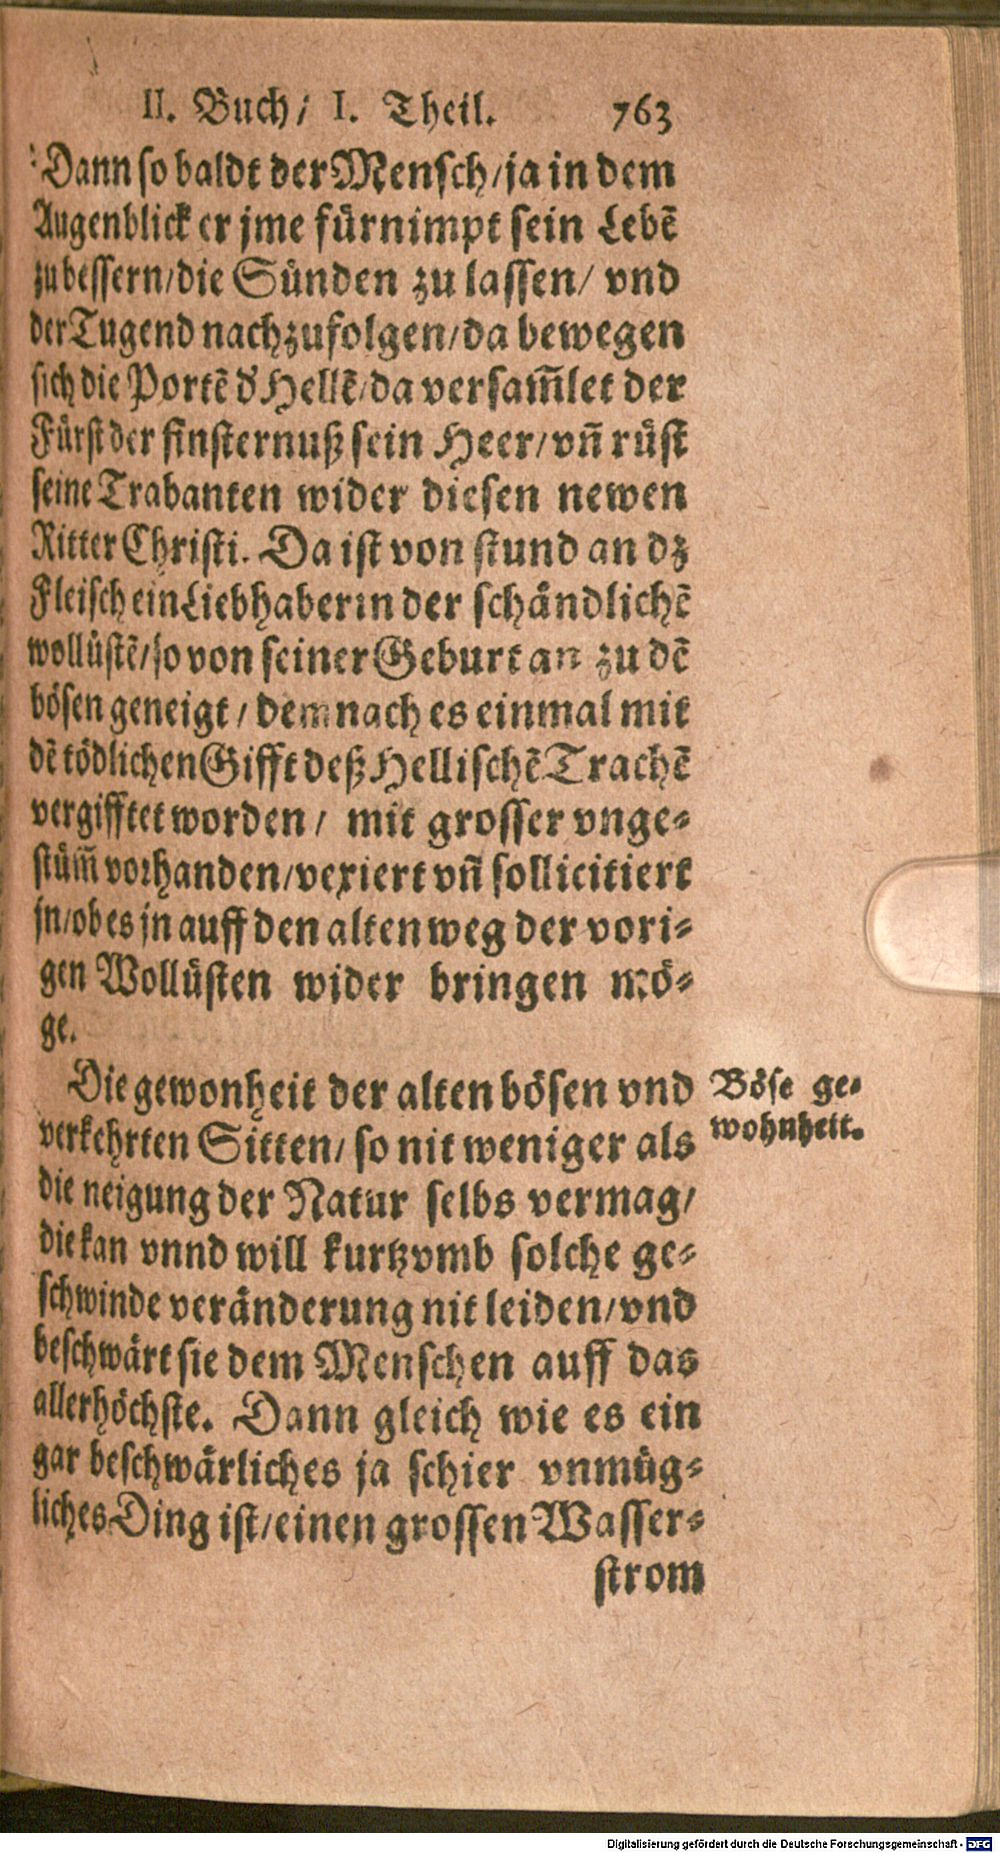 II. Buch/ I. Theil. 763
Dann so baldt der Mensch/ja in dem
Augenblick er jme fürnimpt sein Lebē
zu bessern/die Sünden zu lassen/ vnd
der Tugend nachzufolgen/da bewegen
sich die Portē d' Hellē/da versam̃let der
Fürst der finsternuß sein Heer/vñ rüst
seine Trabanten wider diesen newen
Ritter Christi. Da ist von stund an dz
Fleisch ein Liebhaberin der schändlichē
wollüstē/so von seiner Geburt an zu dē
bösen geneigt/ demnach es einmal mit
dē tödlichen Gifft deß Hellischē Trachē
vergifftet worden/ mit grosser vnge-
stüm̃ vorhanden/vexiert vñ sollicitiert
jn/ob es jn auff den alten weg der vori-
gen Wollüsten wider bringen mö-
ge.
Die gewonheit der alten bösen vnd
verkehrten Sitten/ so nit weniger als
die neigung der Natur selbs vermag/
die kan vnnd will kurtzvmb solche ge-
schwinde veränderung nit leiden/vnd
beschwärt sie dem Menschen auff das
allerhöchste. Dann gleich wie es ein
gar beschwärliches ja schier vnmüg-
liches Ding ist/einen grossen Wasser-
strom
Böse ge-
wohnheit.
Digitalisierung gefördert durch die Deutsche Forschungsgemeinschaft - DFG